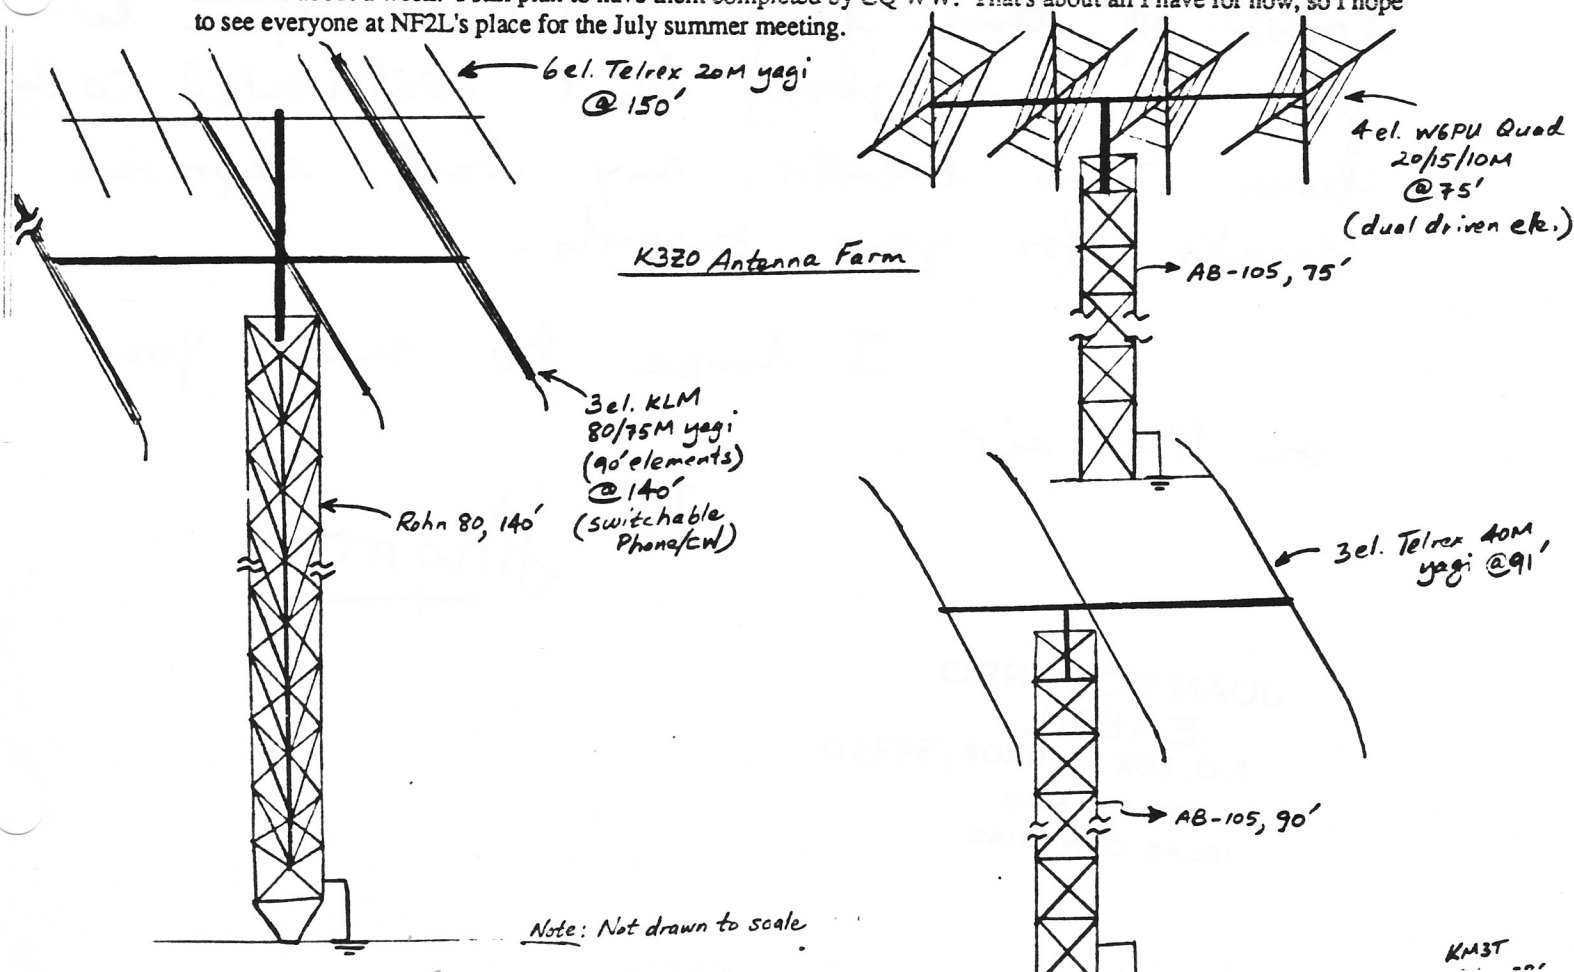 to see everyone at NF2L's place for the July summer meeting.
6 el. Telrex 20M yagi
@ 150'
4 el. W6PU Quad
20/15/10M
@ 75'
(dual driven ele.)
K3ZO Antenna Farm
AB-105, 75'
3 el. KLM
80/75M yagi
(90' elements)
@ 140'
(switchable
Phone/CW)
Rohn 80, 140'
3 el. Telrex 40M
yagi @ 91'
AB-105, 90'
Note: Not drawn to scale
KM3T